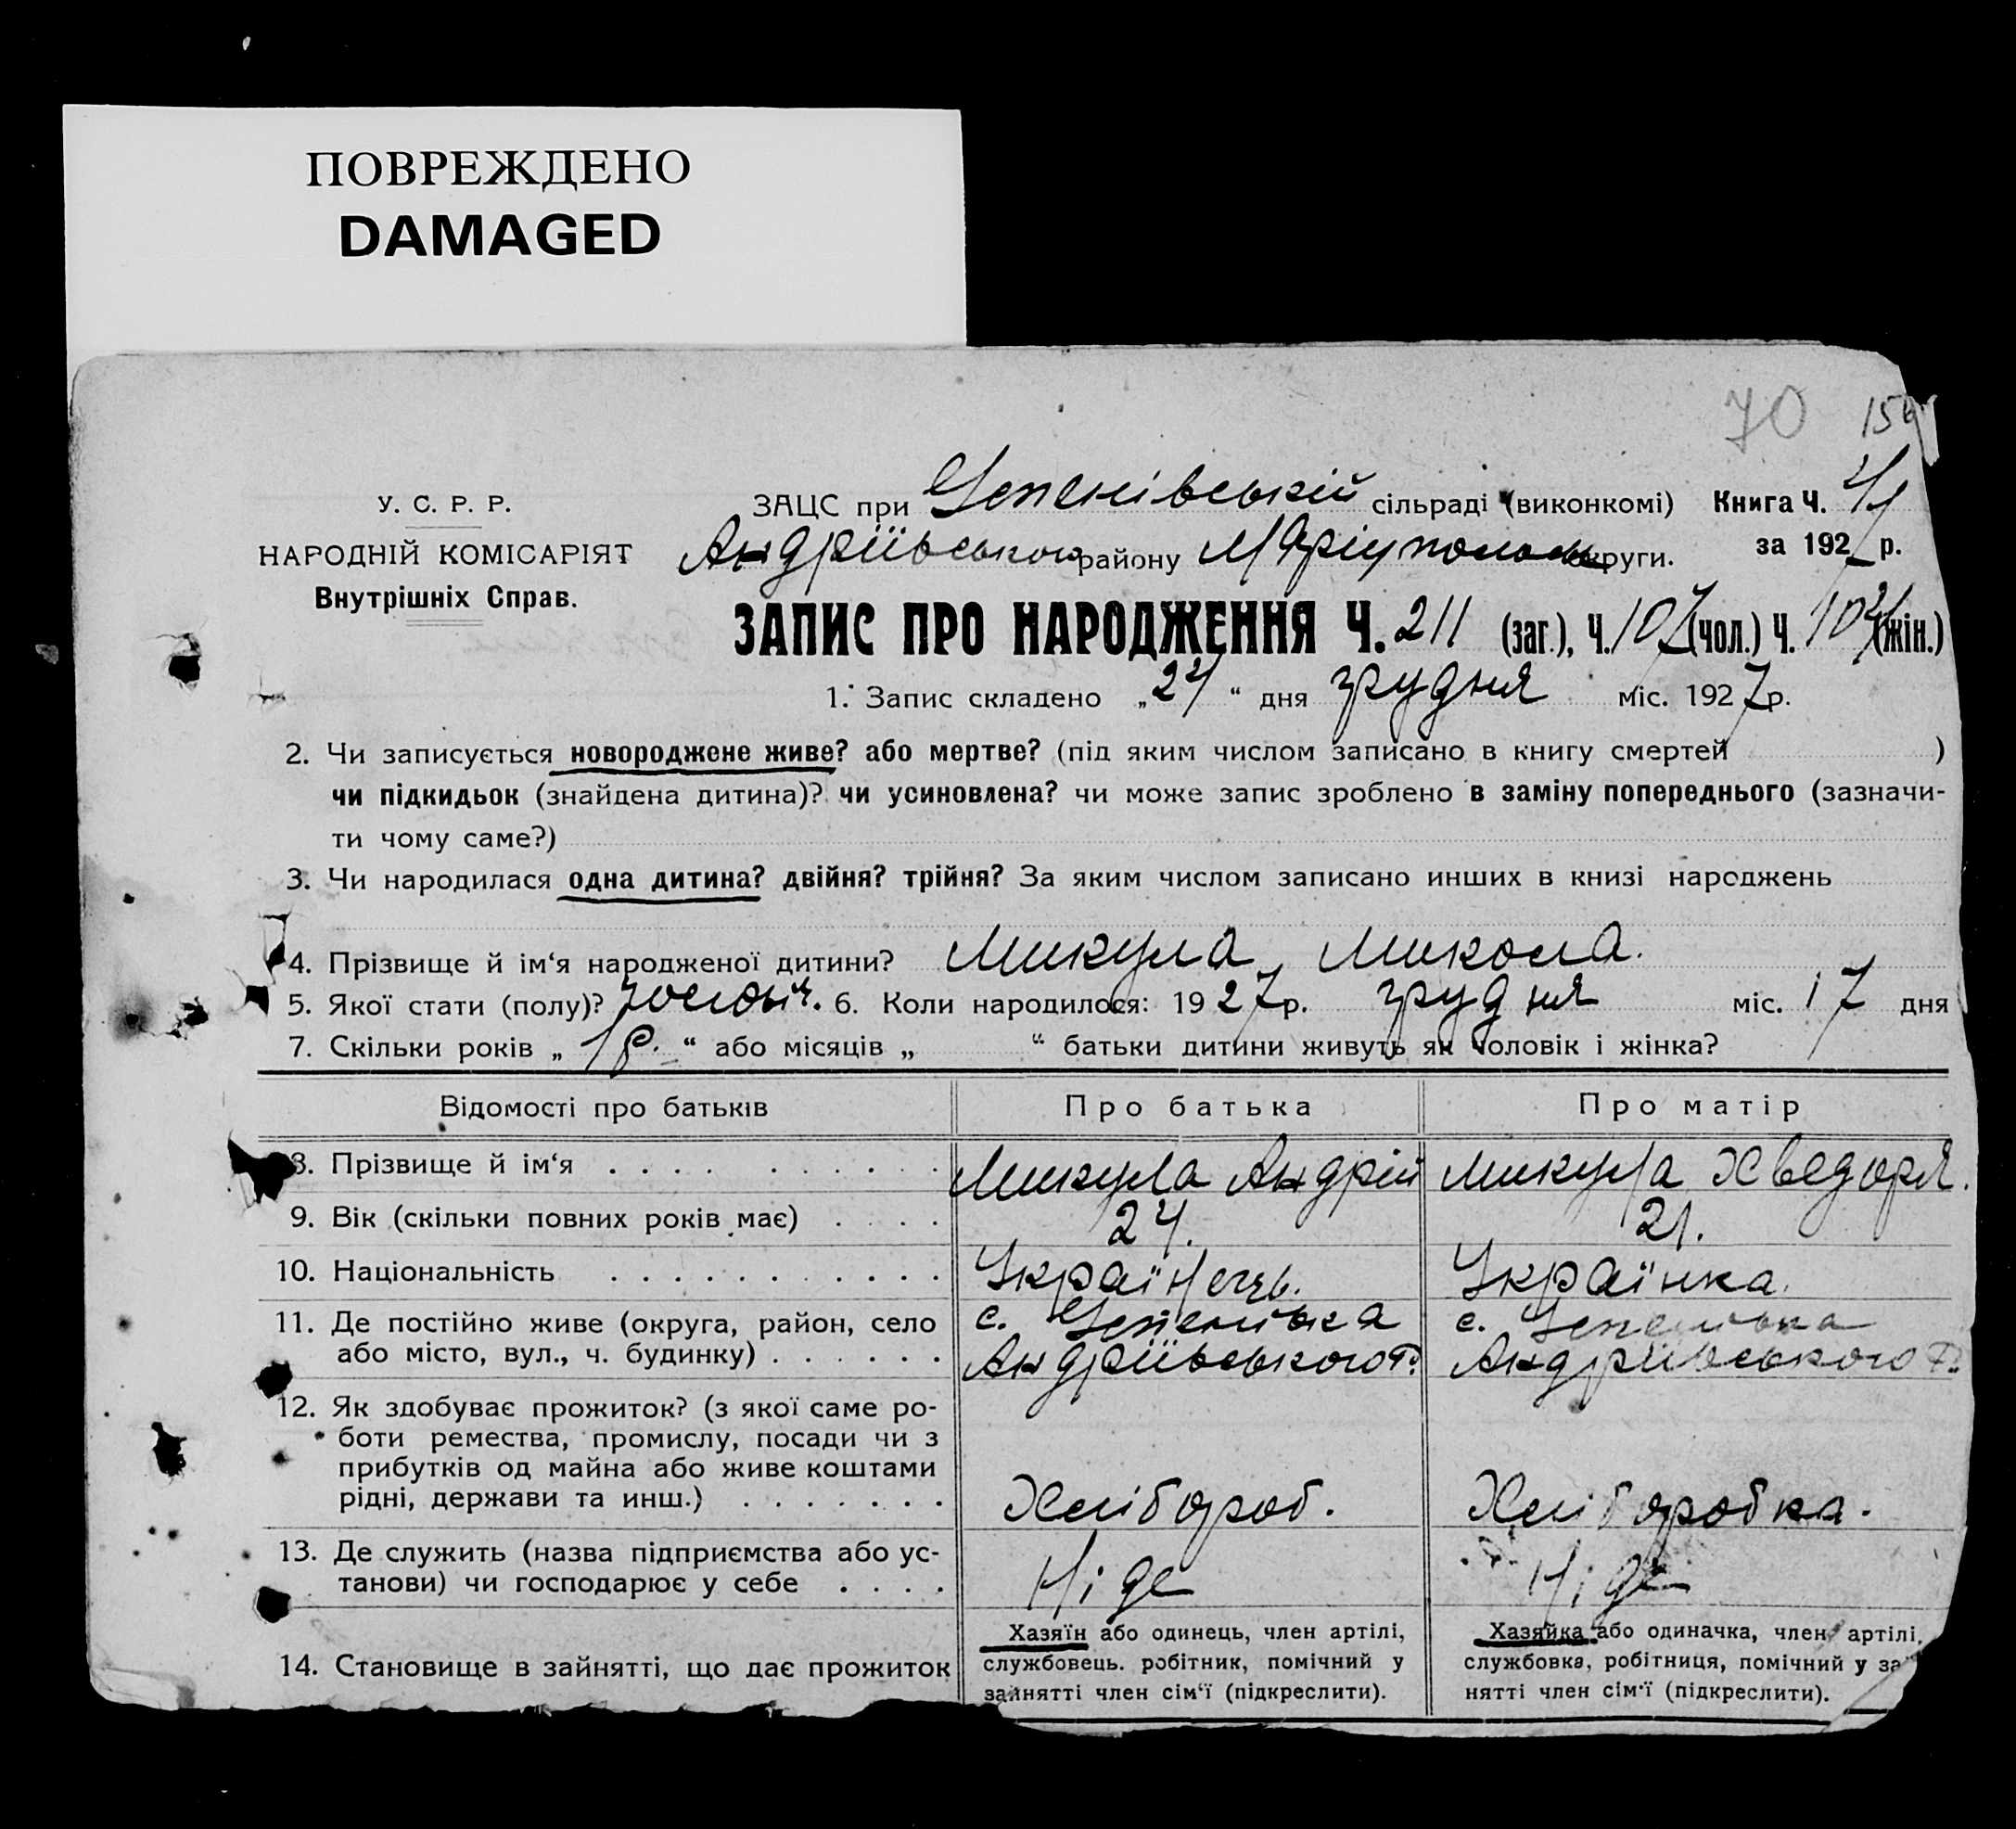 ПОВРЕЖДЕНО
DAMAGED
70 156
У. С. Р. Р.
НАРОДНІЙ КОМІСАРІЯТ
Внутрішніх Справ.
ЗАЦС при Успенівській сільраді (виконкомі) Книга Ч. 4
Андріївського району Маріупольськ округи. за 1927 р.
ЗАПИС ПРО НАРОДЖЕННЯ Ч. 211 (заг.), Ч. 107 (чол.) Ч. 104 (жін.)
1. Запис складено „24“ дня грудня міс. 1927 р.
2. Чи записується новороджене живе? або мертве? (під яким числом записано в книгу смертей )
чи підкидьок (знайдена дитина)? чи усиновлена? чи може запис зроблено в заміну попереднього (зазначи-
ти чому саме?)
3. Чи народилася одна дитина? двійня? трійня? За яким числом записано инших в книзі народжень
4. Прізвище й ім‘я народженої дитини? Микула Микола.
5. Якої стати (полу)? 6. Коли народилося: 1927 р. грудня міс. 17 дня
7. Скільки років „ 1 р. “ або місяців „ “ батьки дитини живуть як чоловік і жінка?
Відомості про батьків Про батька Про матір
8. Прізвище й ім‘я . . . . Микула Андрій Микула Хведоря.
9. Вік (скільки повних років має) . . . . 24. 21.
10. Національність . . . . Українець. Українка.
11. Де постійно живе (округа, район, село с. Успенівка с. Успенівка
або місто, вул., ч. будинку) . . . . . . Андріївського р. Андріївського р.
12. Як здобуває прожиток? (з якої саме ро-
боти ремества, промислу, посади чи з
прибутків од майна або живе коштами
рідні, держави та инш.) . . . . . . . Хлібороб. Хліборобка.
13. Де служить (назва підприємства або ус-
танови) чи господарює у себе . . . . Ніде Ніде
14. Становище в зайнятті, що дає прожиток
Хазяїн або одинець, член артілі,
службовець. робітник, помічний у
зайнятті член сім‘ї (підкреслити).
Хазяйка або одиначка, член артілі,
службовка, робітниця, помічний у за
нятті член сім‘ї (підкреслити).